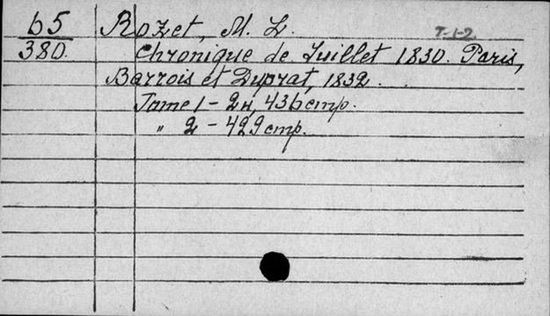 65
380.
Rozet, M. L. T-1-2
Chronique de Juillet 1830. Paris,
Barrois et Duprat, 1832.
Tome 1 - 2н, 436 стр.
" 2 - 429 стр.